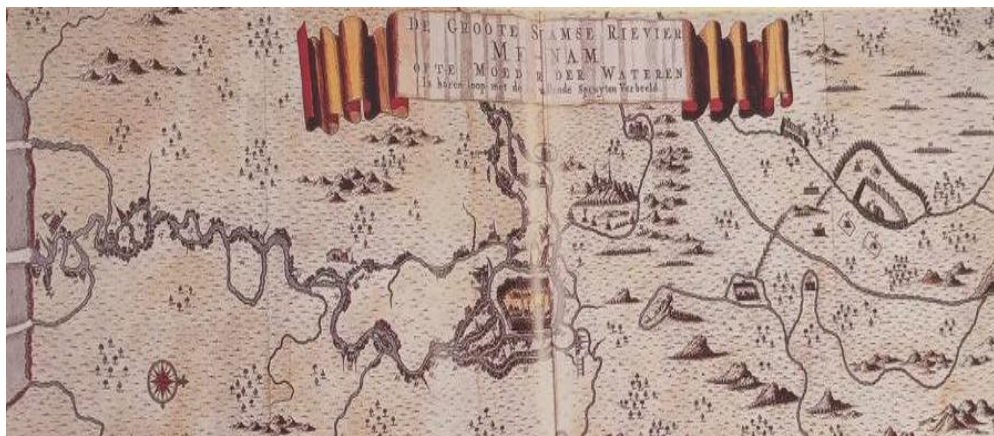 DE GROOTE SIAMSE RIEVIER
ME NAM
OFTE MOEDER DER WATEREN
In haren loop met de Spruyten Verbeeld